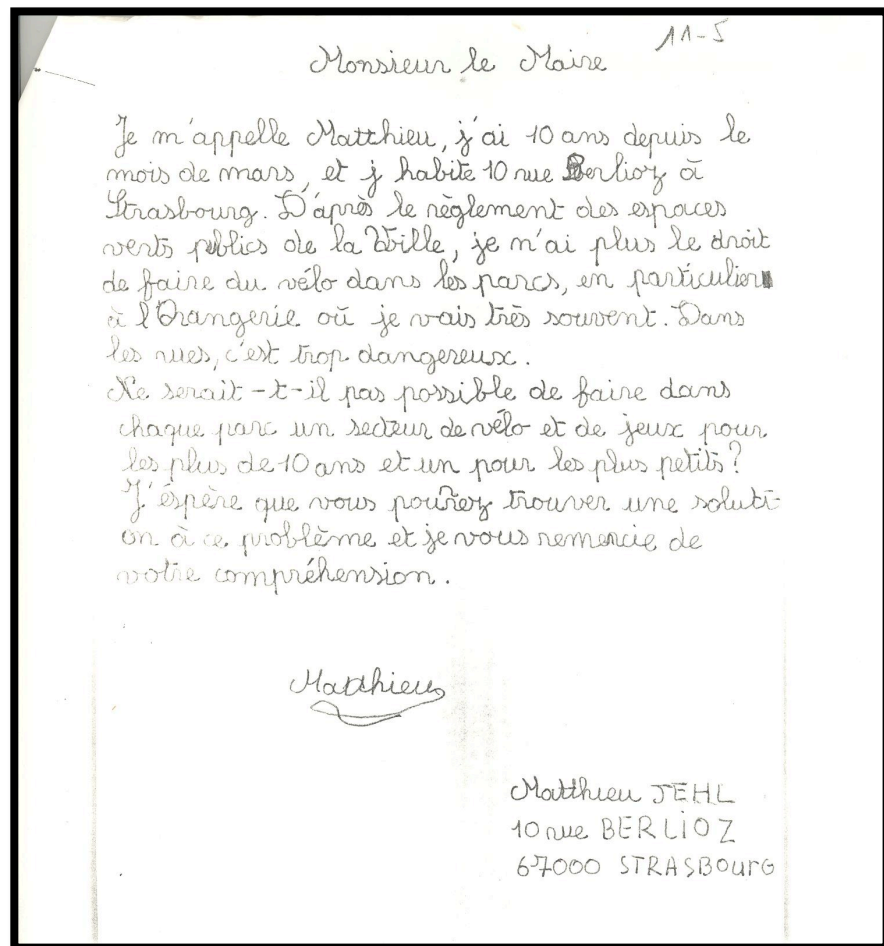 11-5
Monsieur le Maire
Je m'appelle Matthieu, j'ai 10 ans depuis le
mois de mars, et j habite 10 rue Berlioz à
Strasbourg. D'après le règlement des espaces
verts publics de la Ville, je n'ai plus le droit
de faire du vélo dans les parcs, en particulier
à l'Orangerie où je vais très souvent. Dans
les rues, c'est trop dangereux.
Ne serait-t-il pas possible de faire dans
chaque parc un secteur de vélo et de jeux pour
les plus de 10 ans et un pour les plus petits?
J'éspère que vous pourrez trouver une soluti-
on à ce problème et je vous remercie de
votre compréhension.
Matthieu
Matthieu JEHL
10 rue BERLIOZ
67000 STRASBOURG